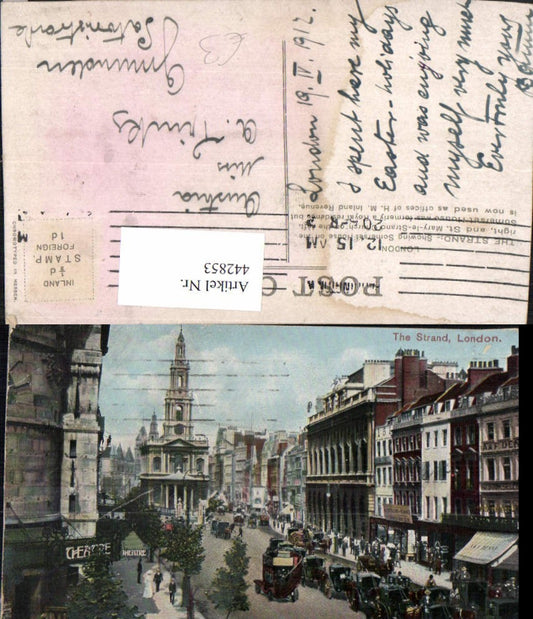 London 19.IV.1912.
I spent here my
Easter-holidays
and was enjoying
myself very much
Austria
Miss
Gmunden
12.15 AM
INLAND
½d
STAMP
FOREIGN
1d
Artikel Nr.
442853
POST C
LONDON
THE STRAND, Showing Somerset House on the
right, and St. Mary-le-Strand Church on the left.
Somerset House was formerly a Royal residence but
is now used as offices of H. M. Inland Revenue.
The Strand, London.
THEATRE
THEATRE